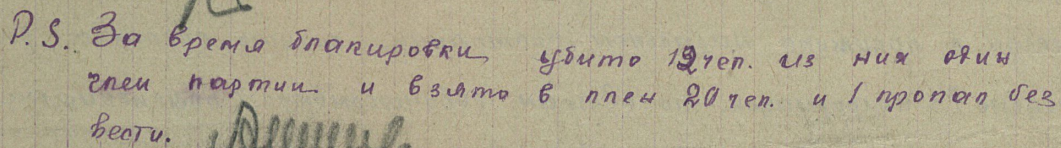 P.S. За время блакировки убито 12 чел. из них один
член партии и взято в плен 20 чел. и 1 пропал без
вести.